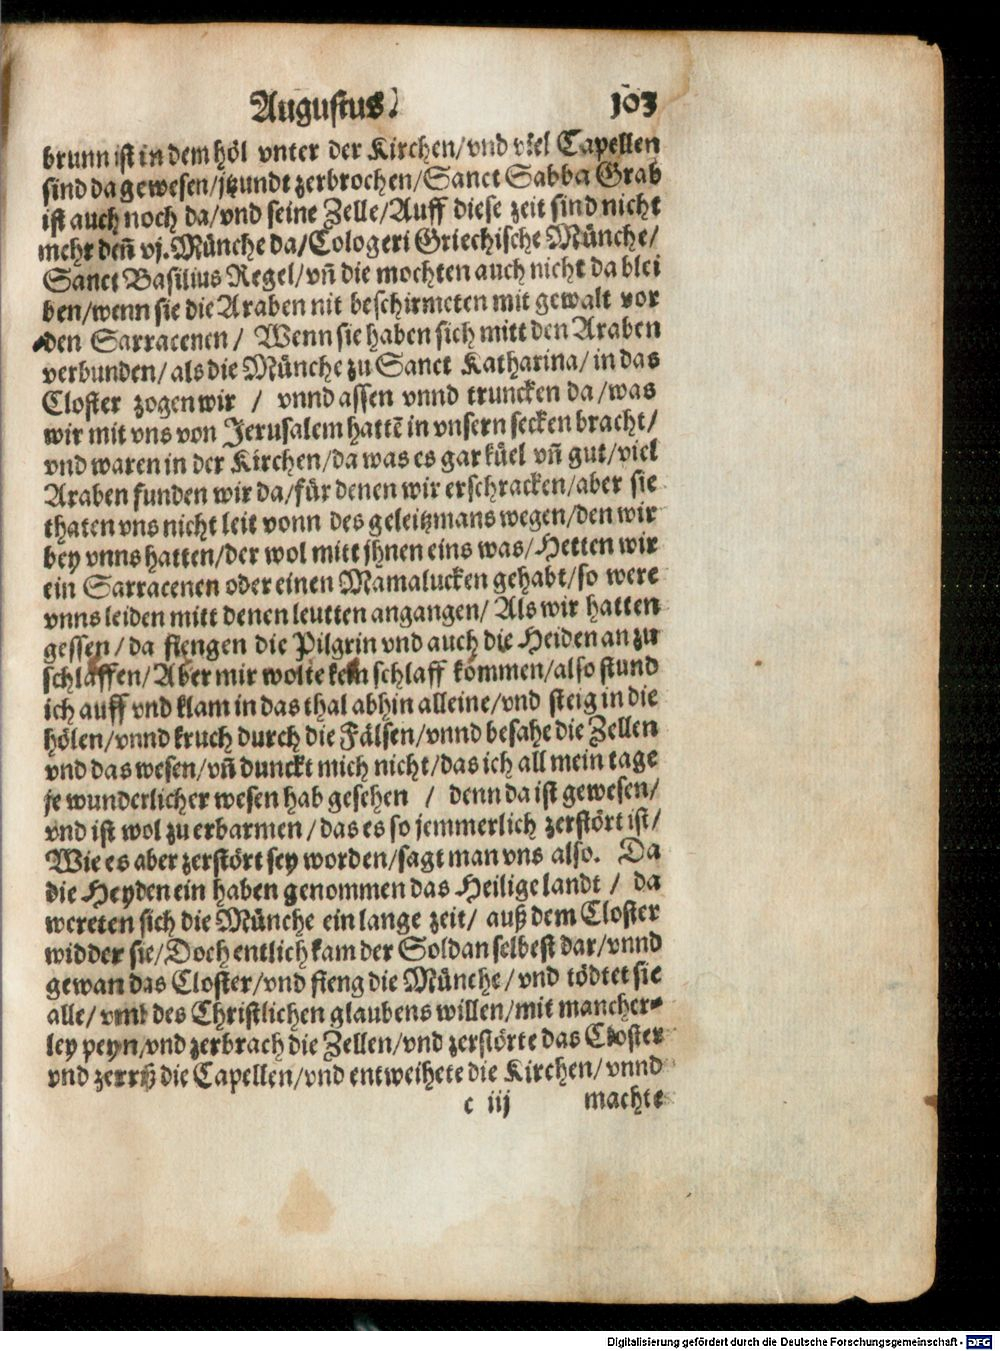 Augustus. 103
brunn ist in dem höl vnter der Kirchen/ vnd viel Capellen
sind da gewesen/ jtzundt zerbrochen/ Sanct Sabba Grab
ist auch noch da/ vnd seine Zelle/ Auff diese zeit sind nicht
mehr deñ vj. Münche da/ Cologeri Griechische Münche/
Sanct Basilius Regel/ vñ die mochten auch nicht da blei
ben/ wenn sie die Araben nit beschirmeten mit gewalt vor
den Sarracenen/ Wenn sie haben sich mitt den Araben
verbunden/ als die Münche zu Sanct Katharina/ in das
Closter zogen wir / vnnd assen vnnd truncken da/ was
wir mit vns von Jerusalem hattē in vnsern secken bracht/
vnd waren in der Kirchen/ da was es gar küel vñ gut/ viel
Araben funden wir da/ für denen wir erschracken/ aber sie
thaten vns nicht leit vonn des geleitzmans wegen/ den wir
bey vnns hatten/ der wol mitt jhnen eins was/ Hetten wir
ein Sarracenen oder einen Mamalucken gehabt/ so were
vnns leiden mitt denen leutten angangen/ Als wir hatten
gessen/ da fiengen die Pilgrin vnd auch die Heiden an zu
schlaffen/ Aber mir wolte kein schlaff kommen/ also stund
ich auff vnd klam in das thal abhin alleine/ vnd steig in die
hölen/ vnnd kruch durch die Fälsen/ vnnd besahe die Zellen
vnd das wesen/ vñ dunckt mich nicht/ das ich all mein tage
je wunderlicher wesen hab gesehen / denn da ist gewesen/
vnd ist wol zu erbarmen/ das es so jemmerlich zerstört ist/
Wie es aber zerstört sey worden/ sagt man vns also. Da
die Heyden ein haben genommen das Heilige landt / da
wereten sich die Münche ein lange zeit/ auß dem Closter
widder sie/ Doch entlich kam der Soldan selbest dar/ vnnd
gewan das Closter/ vnd fieng die Münche/ vnd tödtet sie
alle/ vmb des Christlichen glaubens willen/ mit mancher-
ley peyn/ vnd zerbrach die Zellen/ vnd zerstörte das Closter
vnd zerriß die Capellen/ vnd entweihete die Kirchen/ vnnd
c iij machte
Digitalisierung gefördert durch die Deutsche Forschungsgemeinschaft - DFG